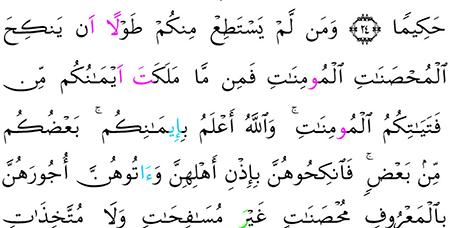 حَكِيمًا ﴿٢٤﴾ وَمَن لَّمْ يَسْتَطِعْ مِنكُمْ طَوْلًا اَن يَنكِحَ
اَلْمُحْصَنَٰتِ اِلْمُومِنَٰتِ فَمِن مَّا مَلَكَتَ اَيْمَٰنُكُم مِّن
فَتَيَٰتِكُمُ اُلْمُومِنَٰتِ ۚ وَاللَّهُ أَعْلَمُ بِإِيمَٰنِكُم ۚ بَعْضُكُم
مِّنۢ بَعْضٍ ۚ فَانكِحُوهُنَّ بِإِذْنِ أَهْلِهِنَّ وَءَاتُوهُنَّ أُجُورَهُنَّ
بِالْمَعْرُوفِ مُحْصَنَٰتٍ غَيْرَ مُسَٰفِحَٰتٍ وَلَا مُتَّخِذَٰتِ